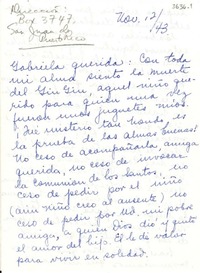 Dirección:
Box 3747
San Juan de
Puerto Rico
3636.1
Nov. 12/
43
Gabriela querida: Con toda
mi alma siento la muerte
del Gin Gin, aquel niño que-
rido para quien una vez
fueron unos juguetes míos.
Que misterio tan hondo, es
la prueba de las almas buenas!
No ceso de acompañarla, amiga
querida, no ceso de invocar
la comunión de los santos, no
ceso de pedir por el niño
(aún niño creo al ausente) no
ceso de pedir por Ud. mi pobre
amiga, a quien Dios dió y quitó
el amor del hijo. El le dé valor
para vivir en soledad.